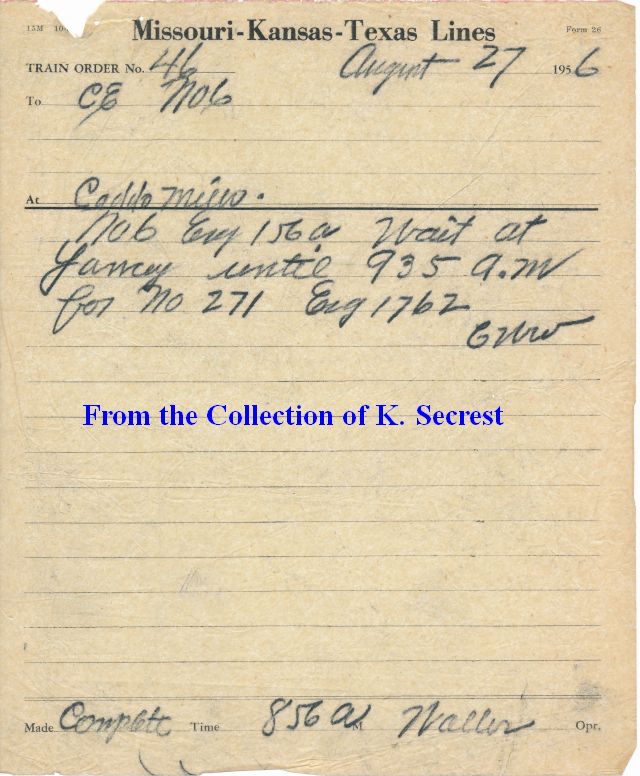 15M 10- Missouri-Kansas-Texas Lines Form 26
TRAIN ORDER No. 46 August 27 1956
To CE No6
At Caddo Mills.
No6 Eng 156a Wait at
until 935 a.m
for No 271 Eng 1762
From the Collection of K. Secrest
Made Complete Time 856 a M Waller Opr.